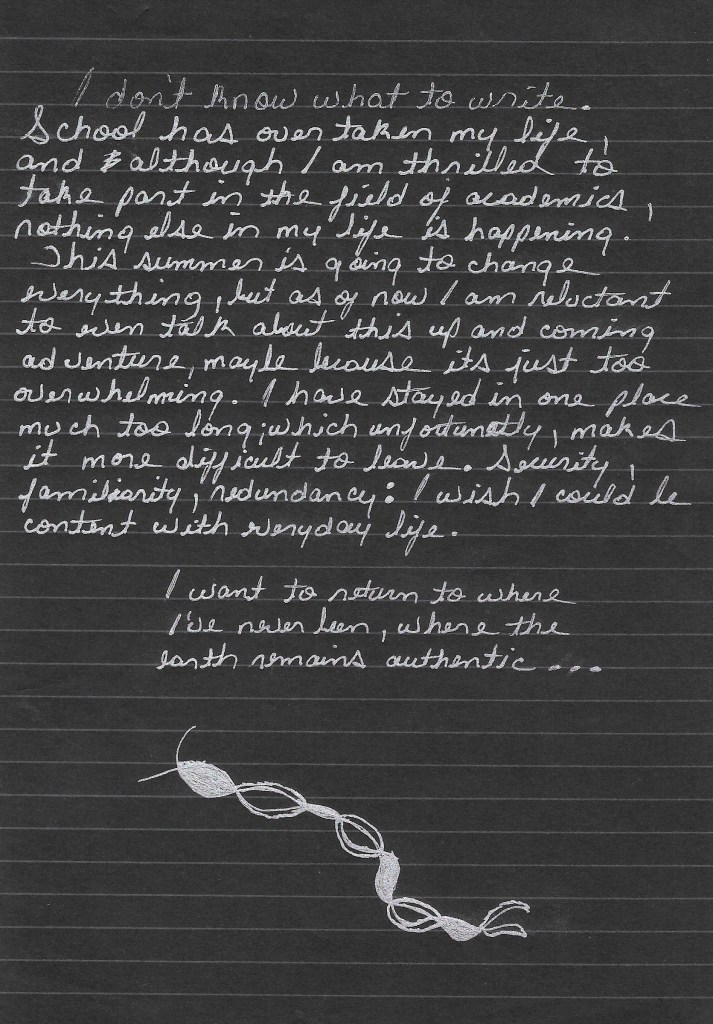 I don't know what to write.
School has over taken my life,
and although I am thrilled to
take part in the field of academics,
nothing else in my life is happening.
This summer is going to change
everything, but as of now I am reluctant
to even talk about this up and coming
adventure, maybe because its just too
overwhelming. I have stayed in one place
much too long; which unfortunatly, makes
it more difficult to leave. Security,
familiarity, redundancy: I wish I could be
content with everyday life.
I want to return to where
I've never been, where the
earth remains authentic...